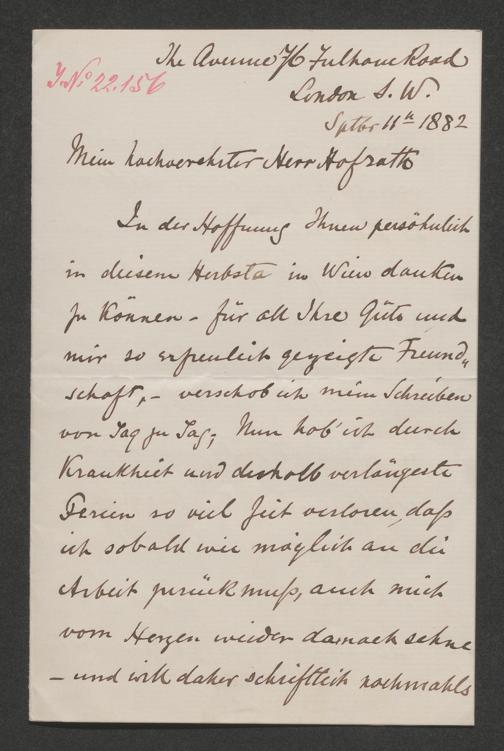 The Avenue 76 Fulham Road
J.No 22.156
London S. W.
Sptbr 11th 1882
Mein hochverehrter Herr Hofrath
In der Hoffnung Ihnen persöhnlich
in diesem Herbste in Wien danken
zu können - für all Ihre Güte und
mir so erfreulich gezeigte Freund„
schaft, - verschob ich mein Schreiben
von Tag zu Tag; Nun hab' ich durch
Krankheit und deshalb verlängerte
Ferien so viel Zeit verloren, daß
ich sobald wie möglich an die
Arbeit zurück muß, auch mich
vom Herzen wieder darnach sehne
- und will daher schriftlich nochmahls